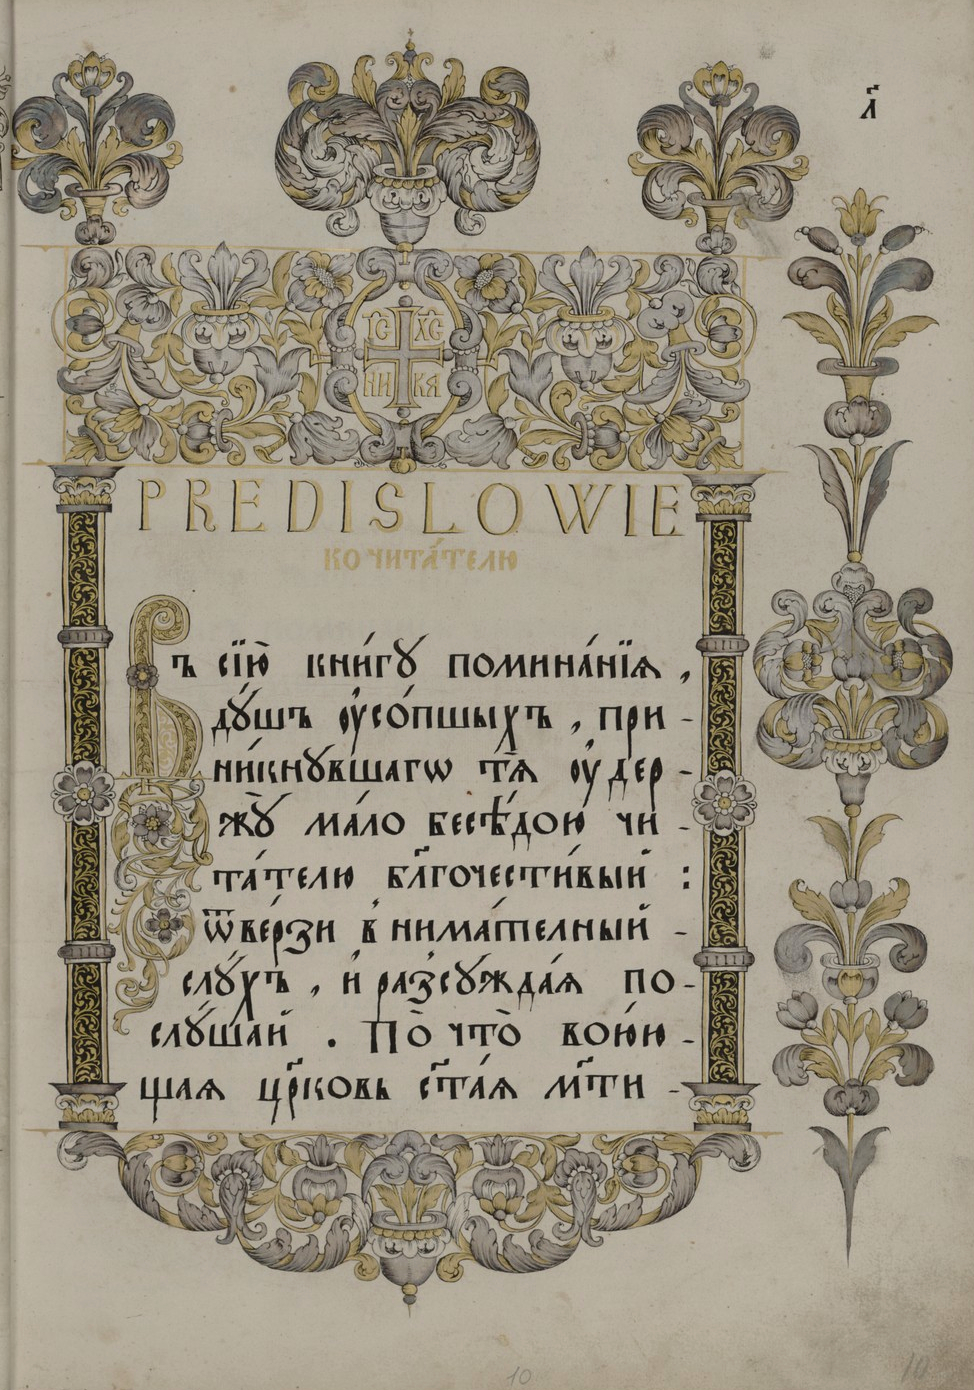 л҃
І҃С Х҃С
НИ КА
PREDISLOWIE
ко чита́телю
Въ сїю̀ кни́гꙋ помина́нїѧ ,
дꙋ́шъ ᲂу҆со́пшыхъ , при -
ни́кнꙋвшагѡ тѧ̀ ᲂу҆́дер -
жꙋ̀ ма́ло бесѣ́дою чи -
та́телю бл҃гочести́вый :
ѿве́рзи в̾нима́телный -
слꙋ́хъ , и҆ разсꙋжда́ѧ по -
слꙋ́шай . По̀ что̀ вою́ю -
щаѧ цр҃ковь ст҃а́ѧ мт҃и -
10
10